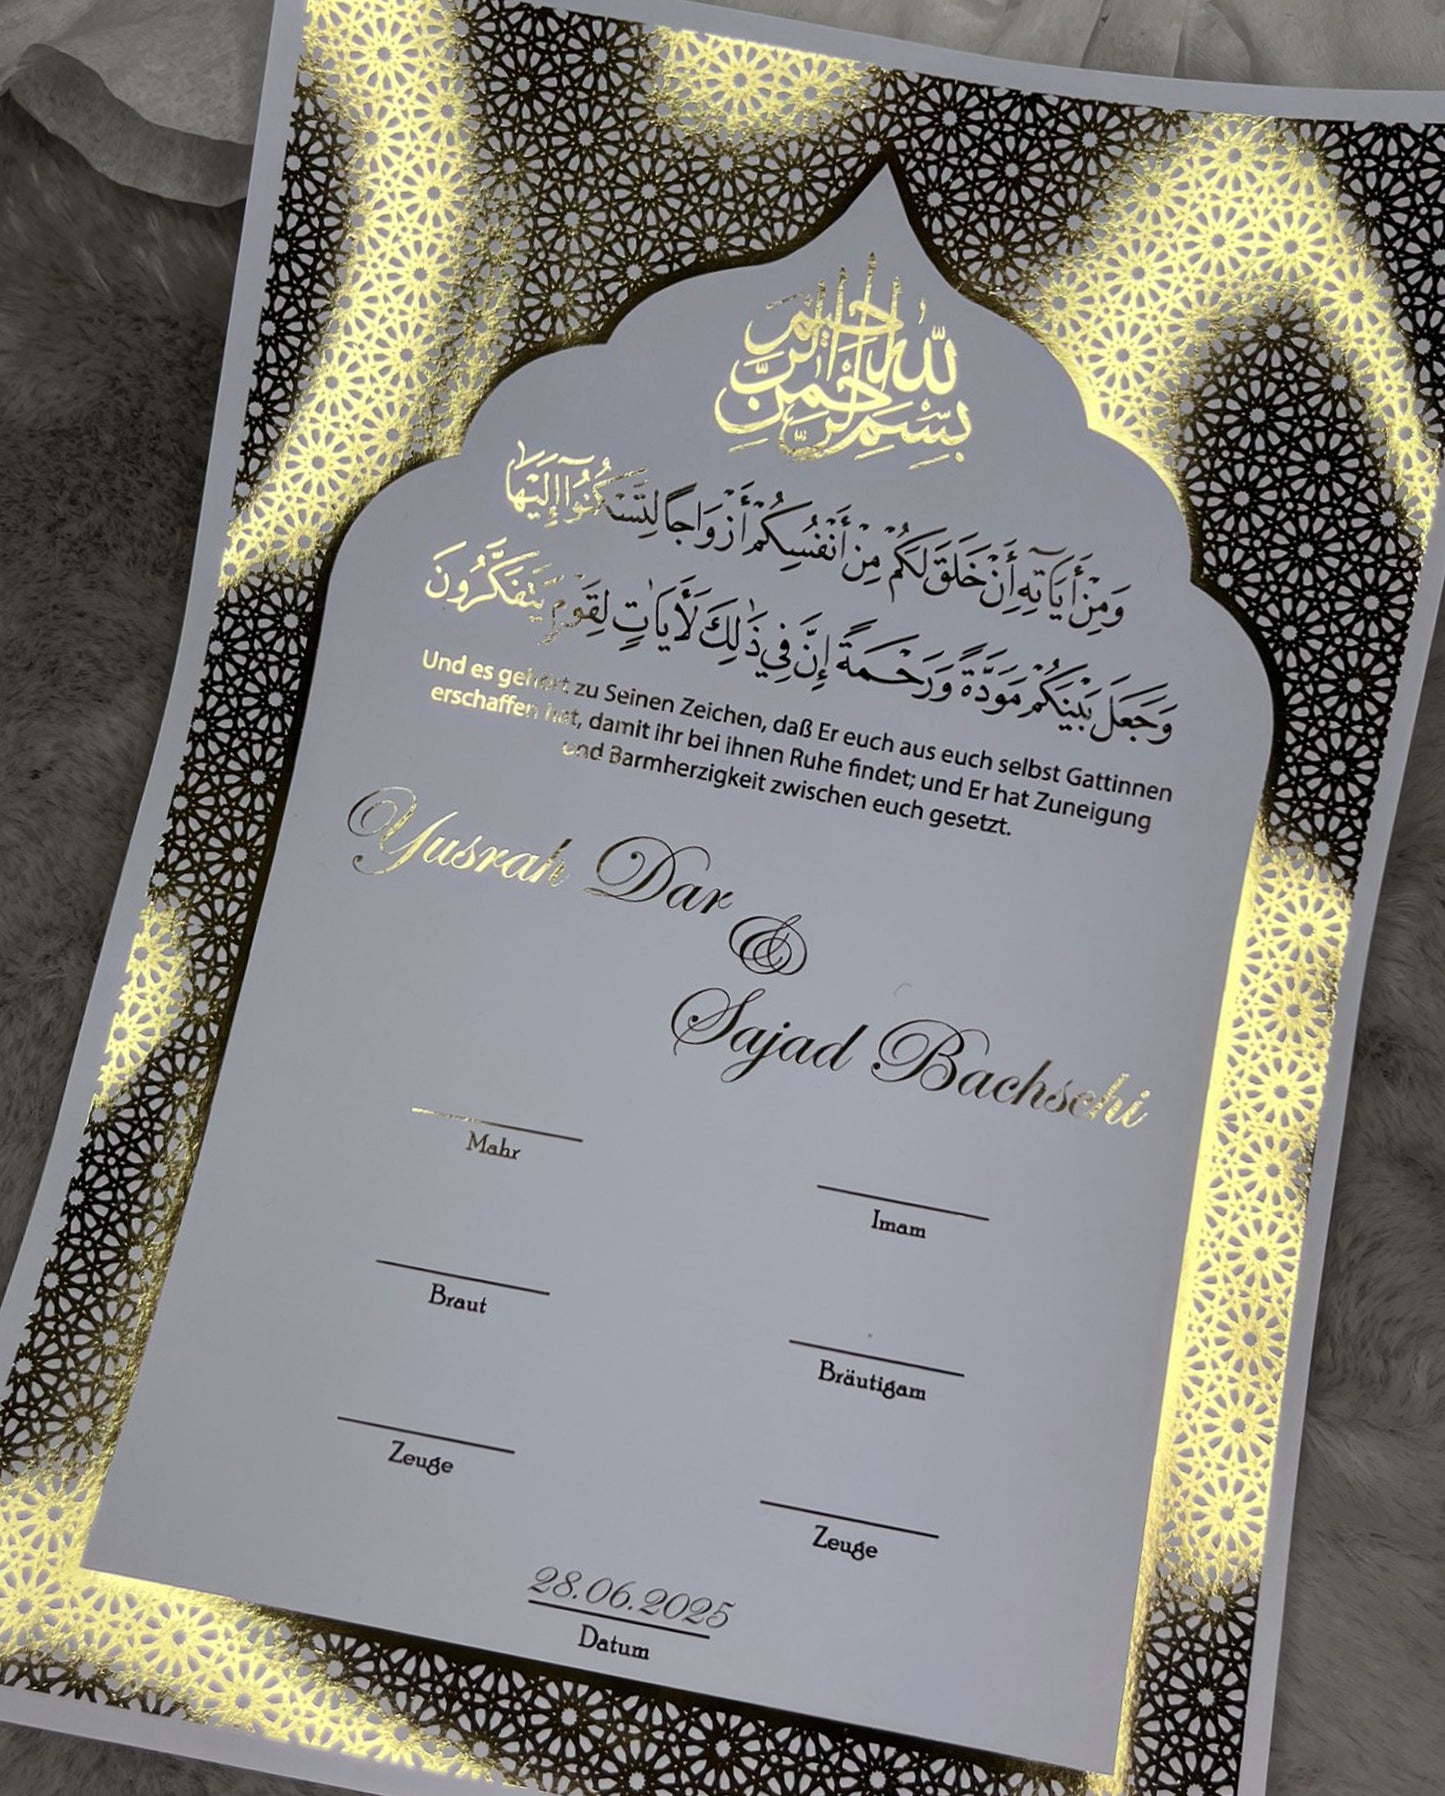 بسم الله الرحمن الرحيم
وَمِنْ أَيَاتِهِ أَنْ خَلَقَ لَكُمْ مِنْ أَنْفُسِكُمْ أَزْوَاجًا لِتَسْكُنُوا إِلَيْهَا
وَجَعَلَ بَيْنَكُمْ مَوَدَّةً وَرَحْمَةً إِنَّ فِي ذَٰلِكَ لَأَيَاتٍ لِقَوْمٍ يَتَفَكَّرُونَ
Und es gehört zu Seinen Zeichen, daß Er euch aus euch selbst Gattinnen
erschaffen hat, damit ihr bei ihnen Ruhe findet; und Er hat Zuneigung
und Barmherzigkeit zwischen euch gesetzt.
Yusrah Dar
&
Sajad Bachschi
Mahr
Imam
Braut
Bräutigam
Zeuge
Zeuge
28.06.2025
Datum